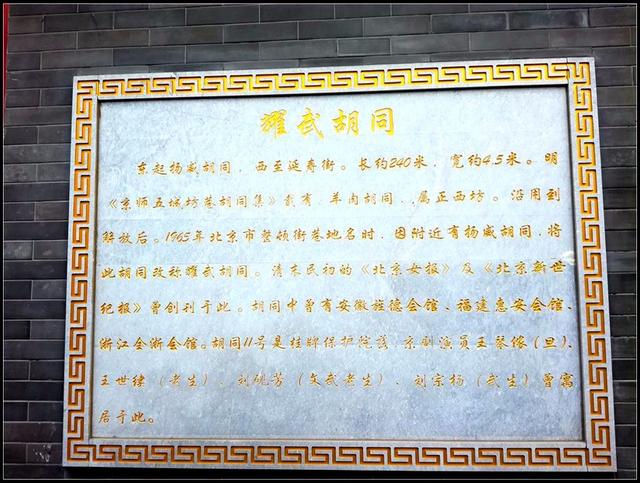 耀武胡同
东起扬威胡同，西至延寿街。长约240米，宽约4.5米。明
《京师五城坊巷胡同集》载有：羊肉胡同，属正西坊。沿用到
解放后。1965年北京市整顿街巷地名时，因附近有扬威胡同，将
此胡同改称耀武胡同。清末民初的《北京女报》及《北京新世
纪报》曾创刊于此。胡同中曾有安徽旌德会馆、福建惠安会馆、
浙江全浙会馆。胡同11号是挂牌保护院落，京剧演员王琴侬（旦）、
王世续（老生）、刘砚芳（文武老生）、刘宗杨（武生）曾寓
居于此。